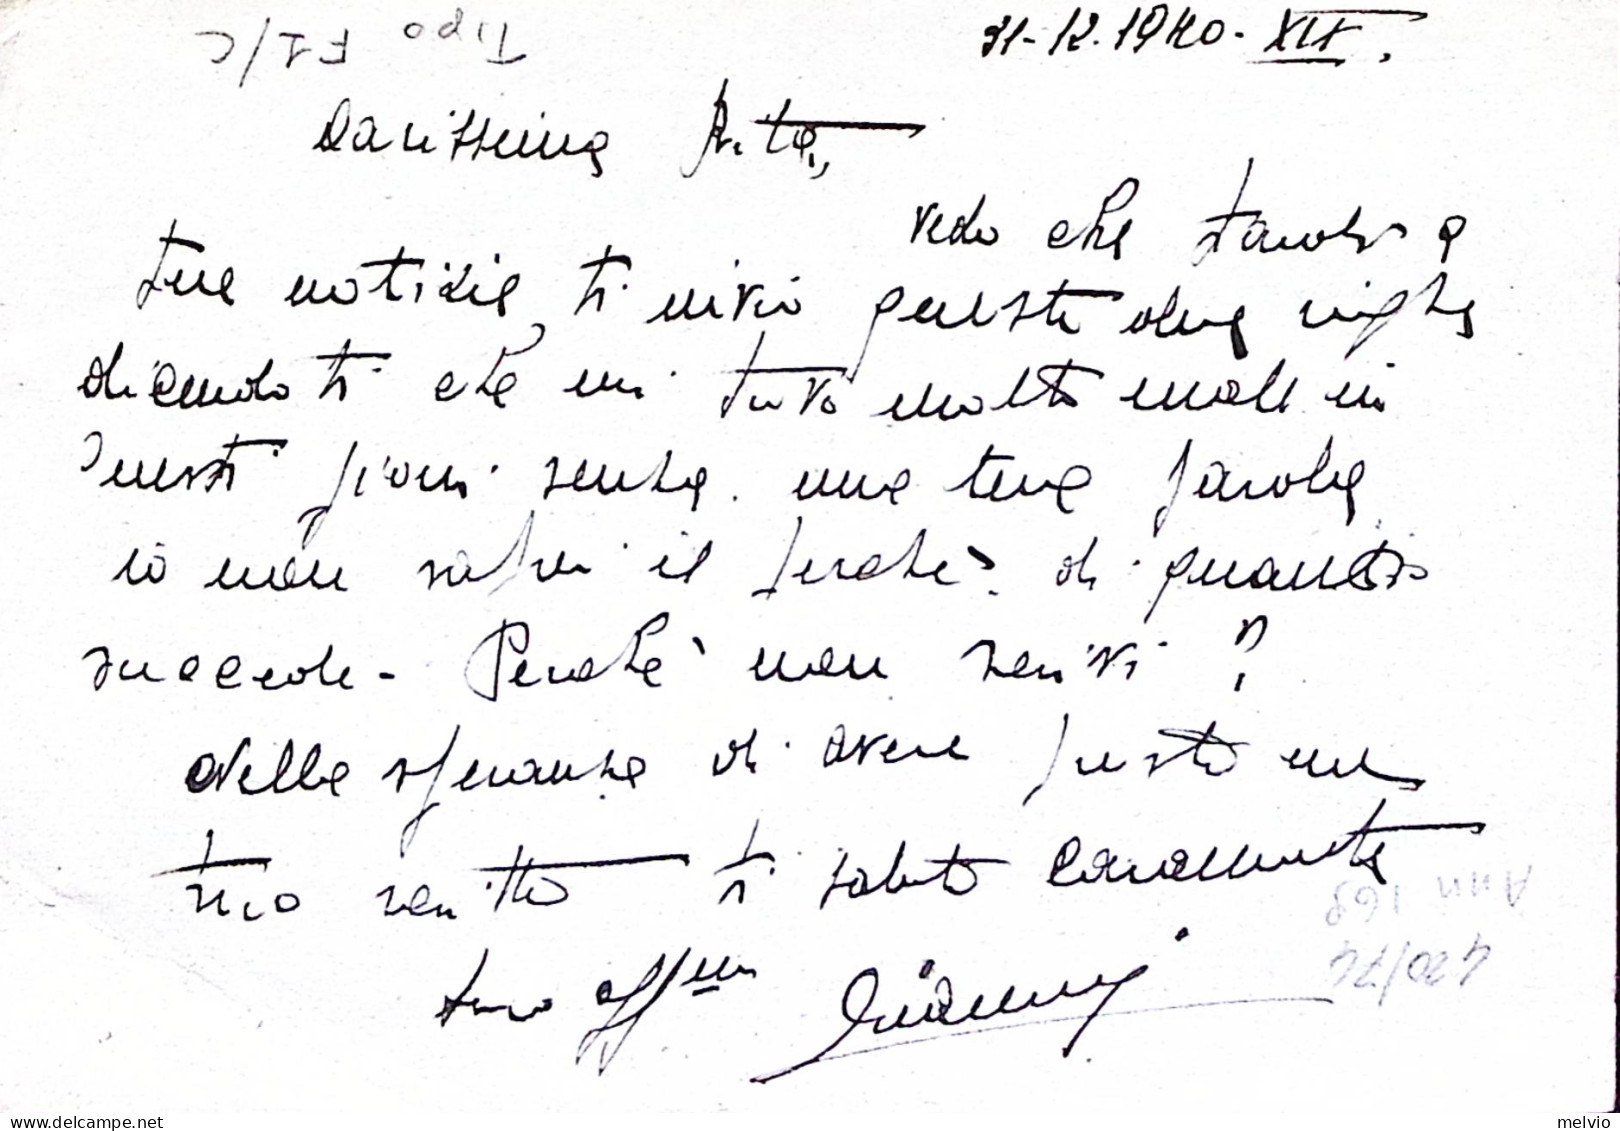 31-12-1940-XIX.
Tipo F1/C
Carissima Rita,
vedo che tardano le
tue notizie, ti invio queste due righe
dicendoti che mi trovo molto male in
questi giorni senza una tua parola
io non saprei il perchè di quanto
succede - Perchè non scrivi?
Nella speranza di avere presto un
tuo scritto ti saluto caramente
tuo aff.mo Gianni
Ann 168
420/74
melvio